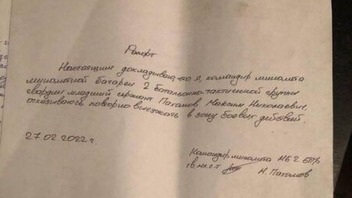 Рапорт
Настоящим докладываю что я, командир миномёта
миномётной батареи 2 батальонно-тактической группы
гвардии младший сержант Патамов Максим Николаевич
отказываюсь повторно выезжать в зону боевых действий
27.02.2022 г
Командир миномёта МБ 2 БТГр
гв. мл. с-т М. Патамов